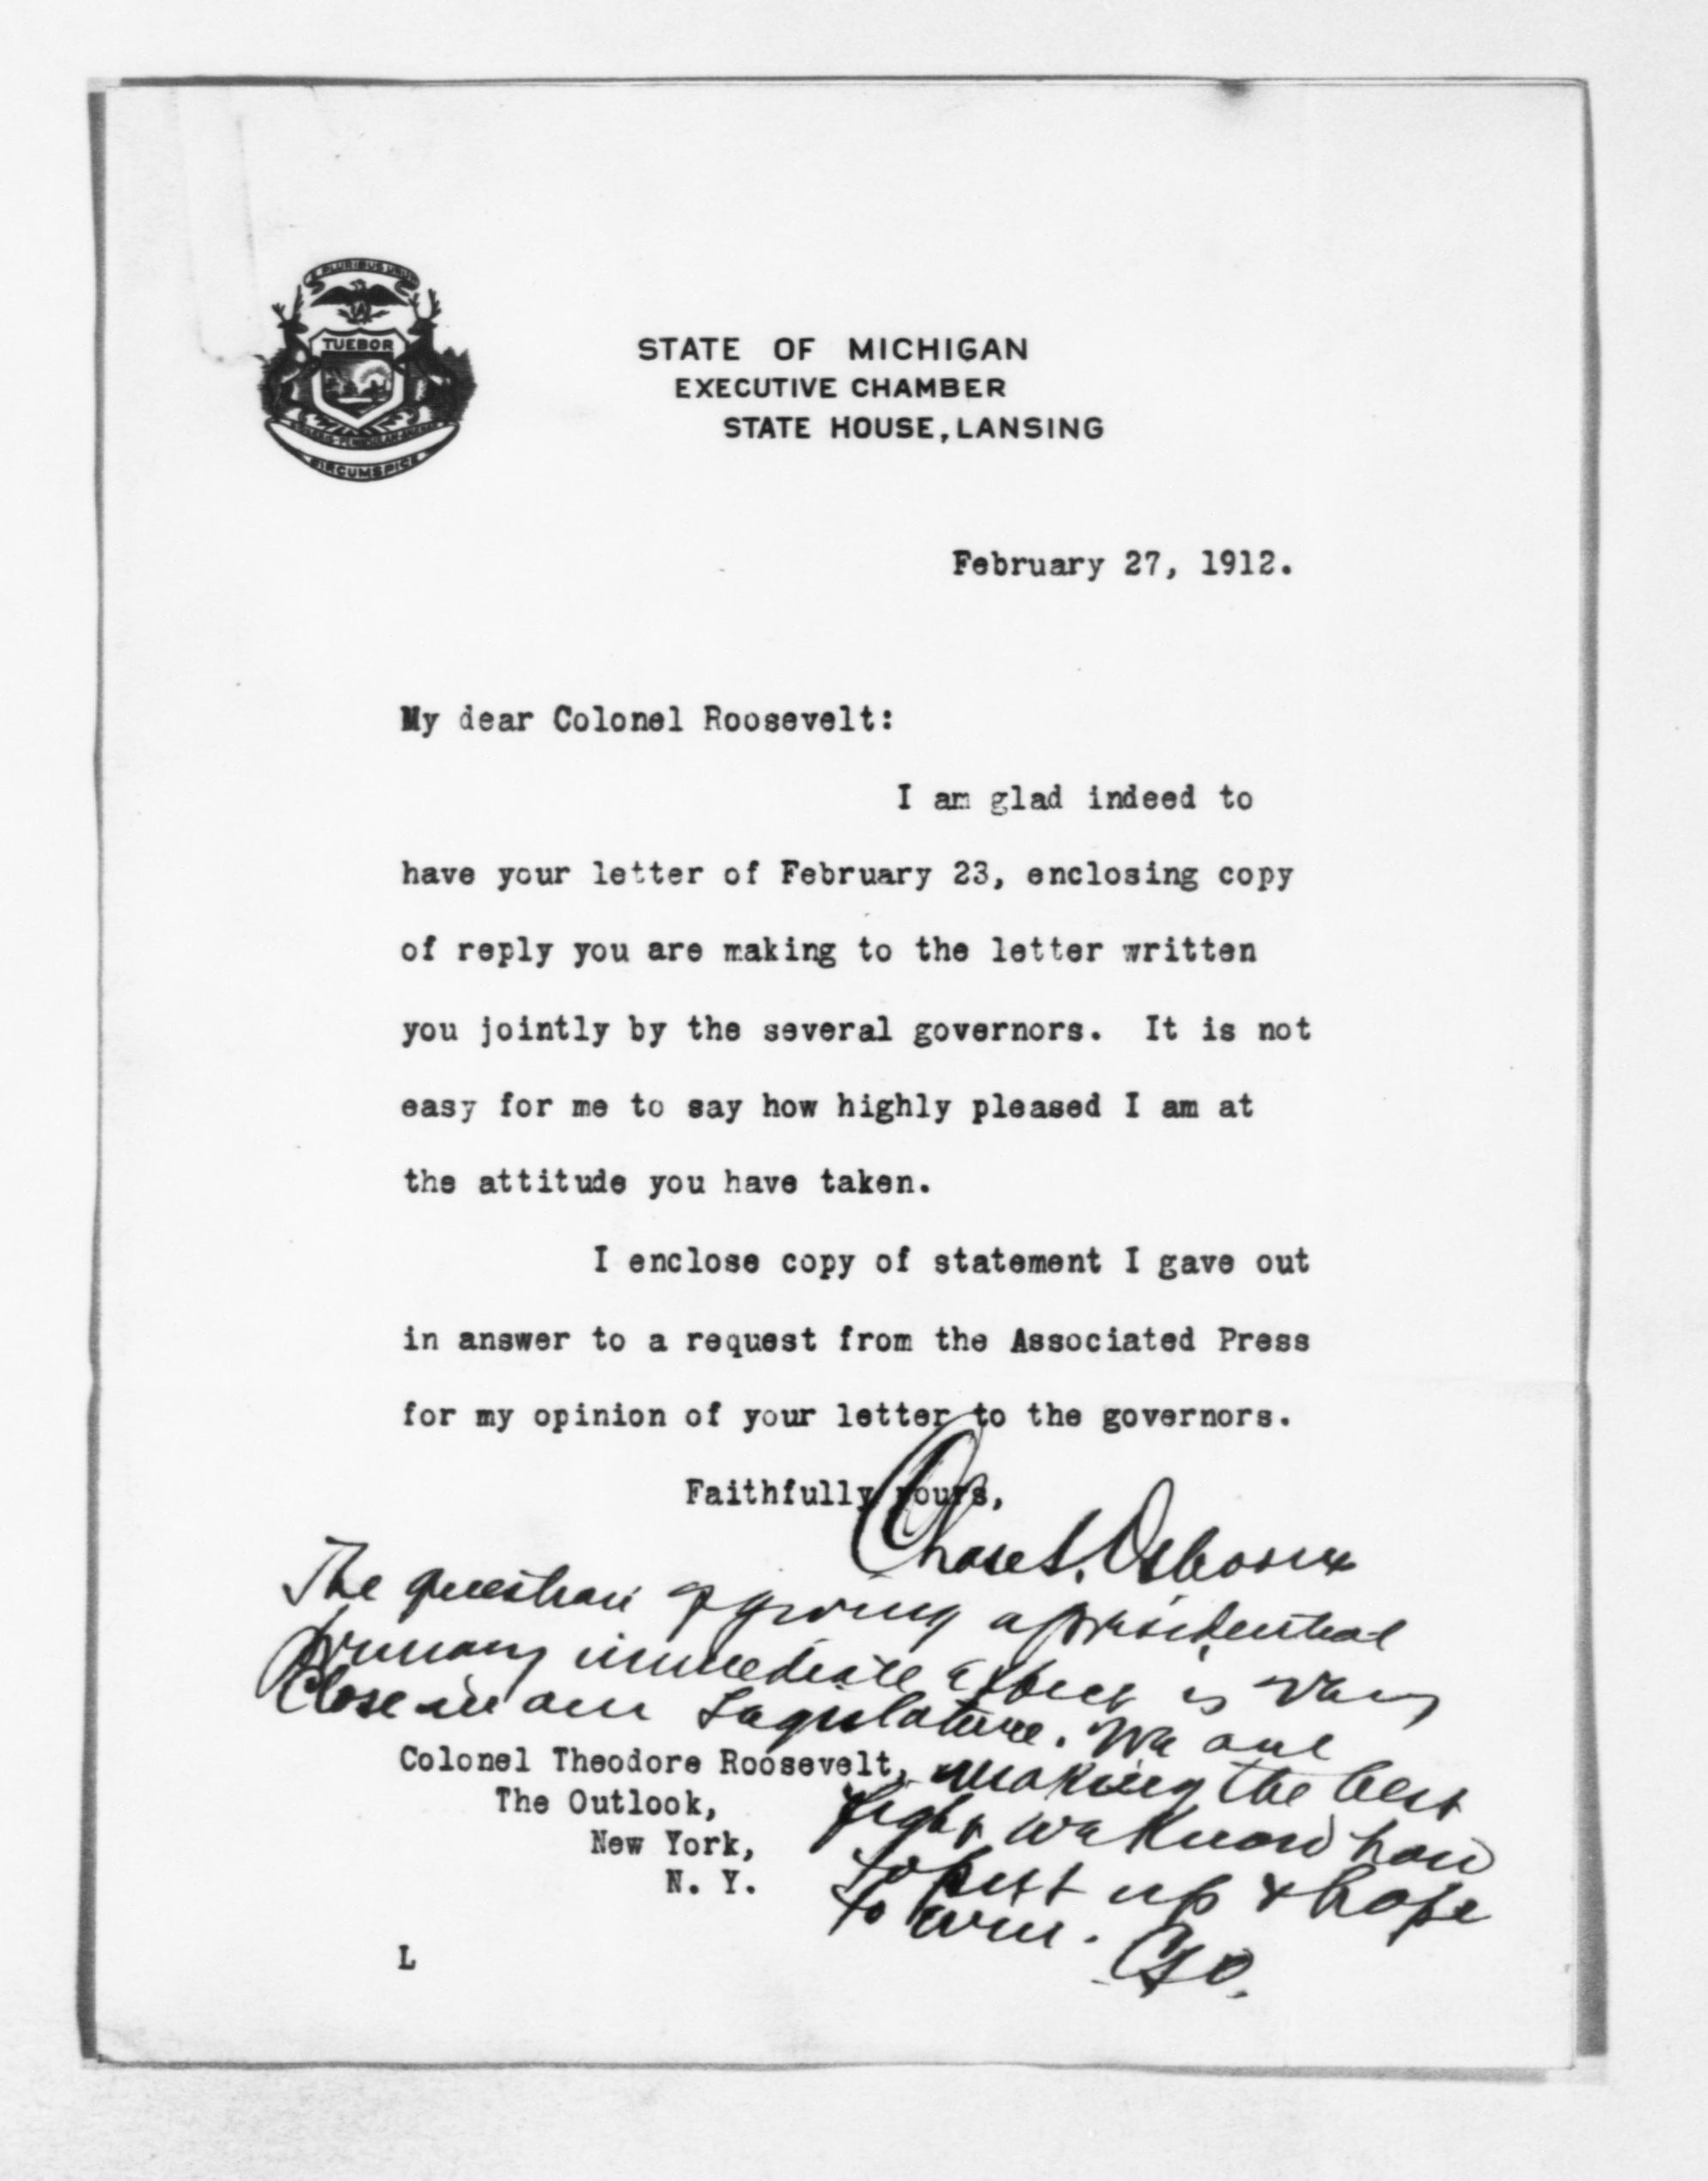 E PLURIBUS UNUM
TUEBOR
CIRCUMSPICE
STATE OF MICHIGAN
EXECUTIVE CHAMBER
STATE HOUSE, LANSING
February 27, 1912.
My dear Colonel Roosevelt:
I am glad indeed to
have your letter of February 23, enclosing copy
of reply you are making to the letter written
you jointly by the several governors. It is not
easy for me to say how highly pleased I am at
the attitude you have taken.
I enclose copy of statement I gave out
in answer to a request from the Associated Press
for my opinion of your letter to the governors.
Faithfully yours,
Chase S. Osborn
The question of giving a presidential
primary immediate effect is very
close in our Legislature. We are
making the best
fight we know how
to put up & hope
to win. CSO.
Colonel Theodore Roosevelt,
The Outlook,
New York,
N. Y.
L